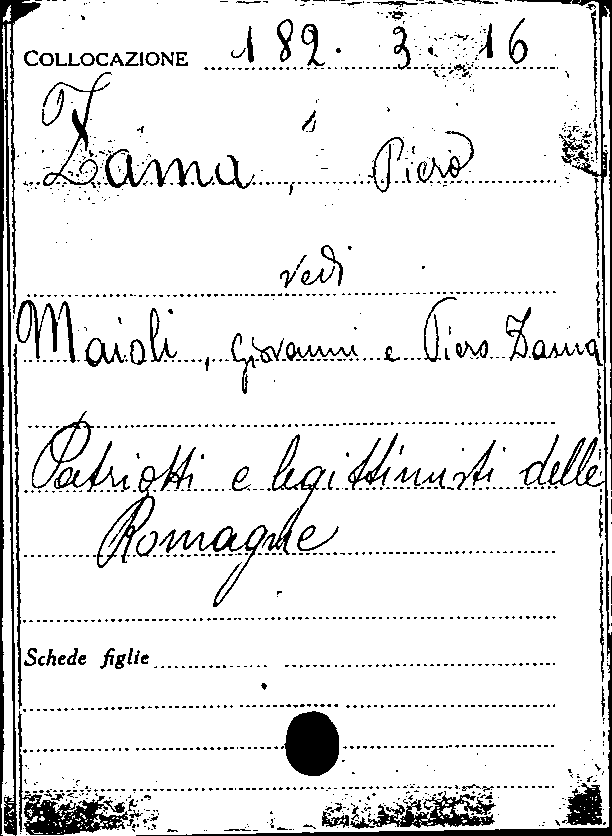 COLLOCAZIONE 182. 3. 16
Zama, Piero
vedi
Maioli, Giovanni e Piero Zama
Patriotti e legittimisti delle
Romagne
Schede figlie